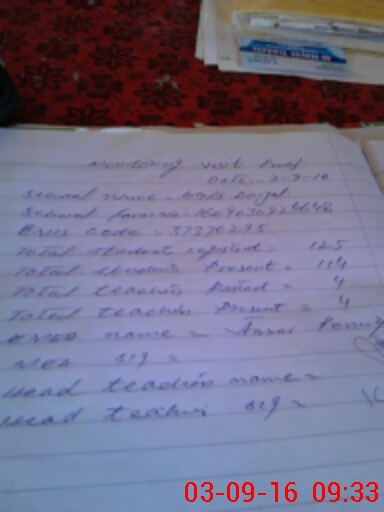 Monitoring visit Proof
Date:- 3-9-16
School name =
School
EMIS code = 37370295
Total students reported = 125
Total students Present = 114
Total teachers Posted = 4
Total teachers Present = 4
name = Ansar
MEA sig =
Head teacher name =
Head teacher sig =
03-09-16 09:33